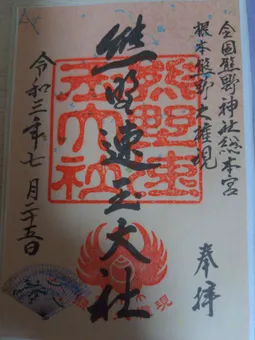 全国熊野神社総本宮
根本熊野大権現
奉拝
熊野速玉大社
熊野速玉大社
令和三年七月二十五日